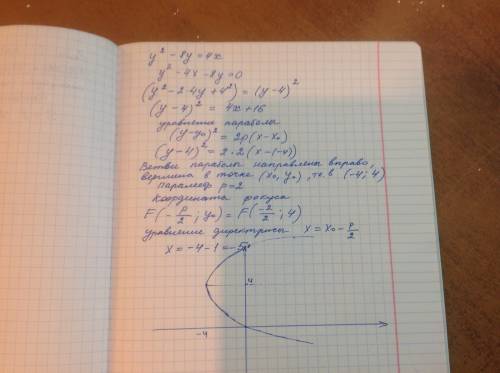 y² - 8y = 4x
y² - 4x - 8y = 0
(y² - 2·4y + 4²) = (y - 4)²
(y - 4)² = 4x + 16
уравнение параболы
(y - y₀)² = 2p(x - x₀)
(y - 4)² = 2·2(x - (-4))
Ветви параболы направлены вправо,
вершина в точке (x₀, y₀), т.е. в (-4; 4)
параметр p = 2
Координата фокуса
F(-p/2; y₀) = F(-2/2; 4)
уравнение директрисы x = x₀ - p/2
x = -4 - 1 = -5
4
-4